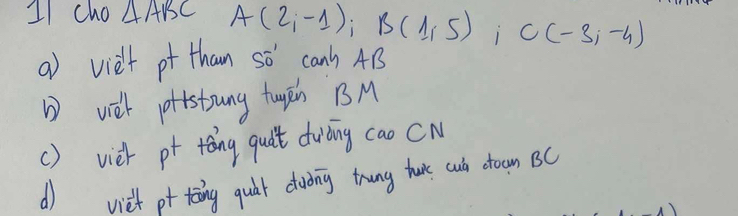 1) Cho ΔABC A(2;-1); B(1;5) ; C(-3;-4)
a) viết pt tham số cạnh AB
b) viết pttstrung tuyến BM
c) viết pt tổng quát đường cao CN
d) viết pt tổng quát đường trung trực của đoạn BC